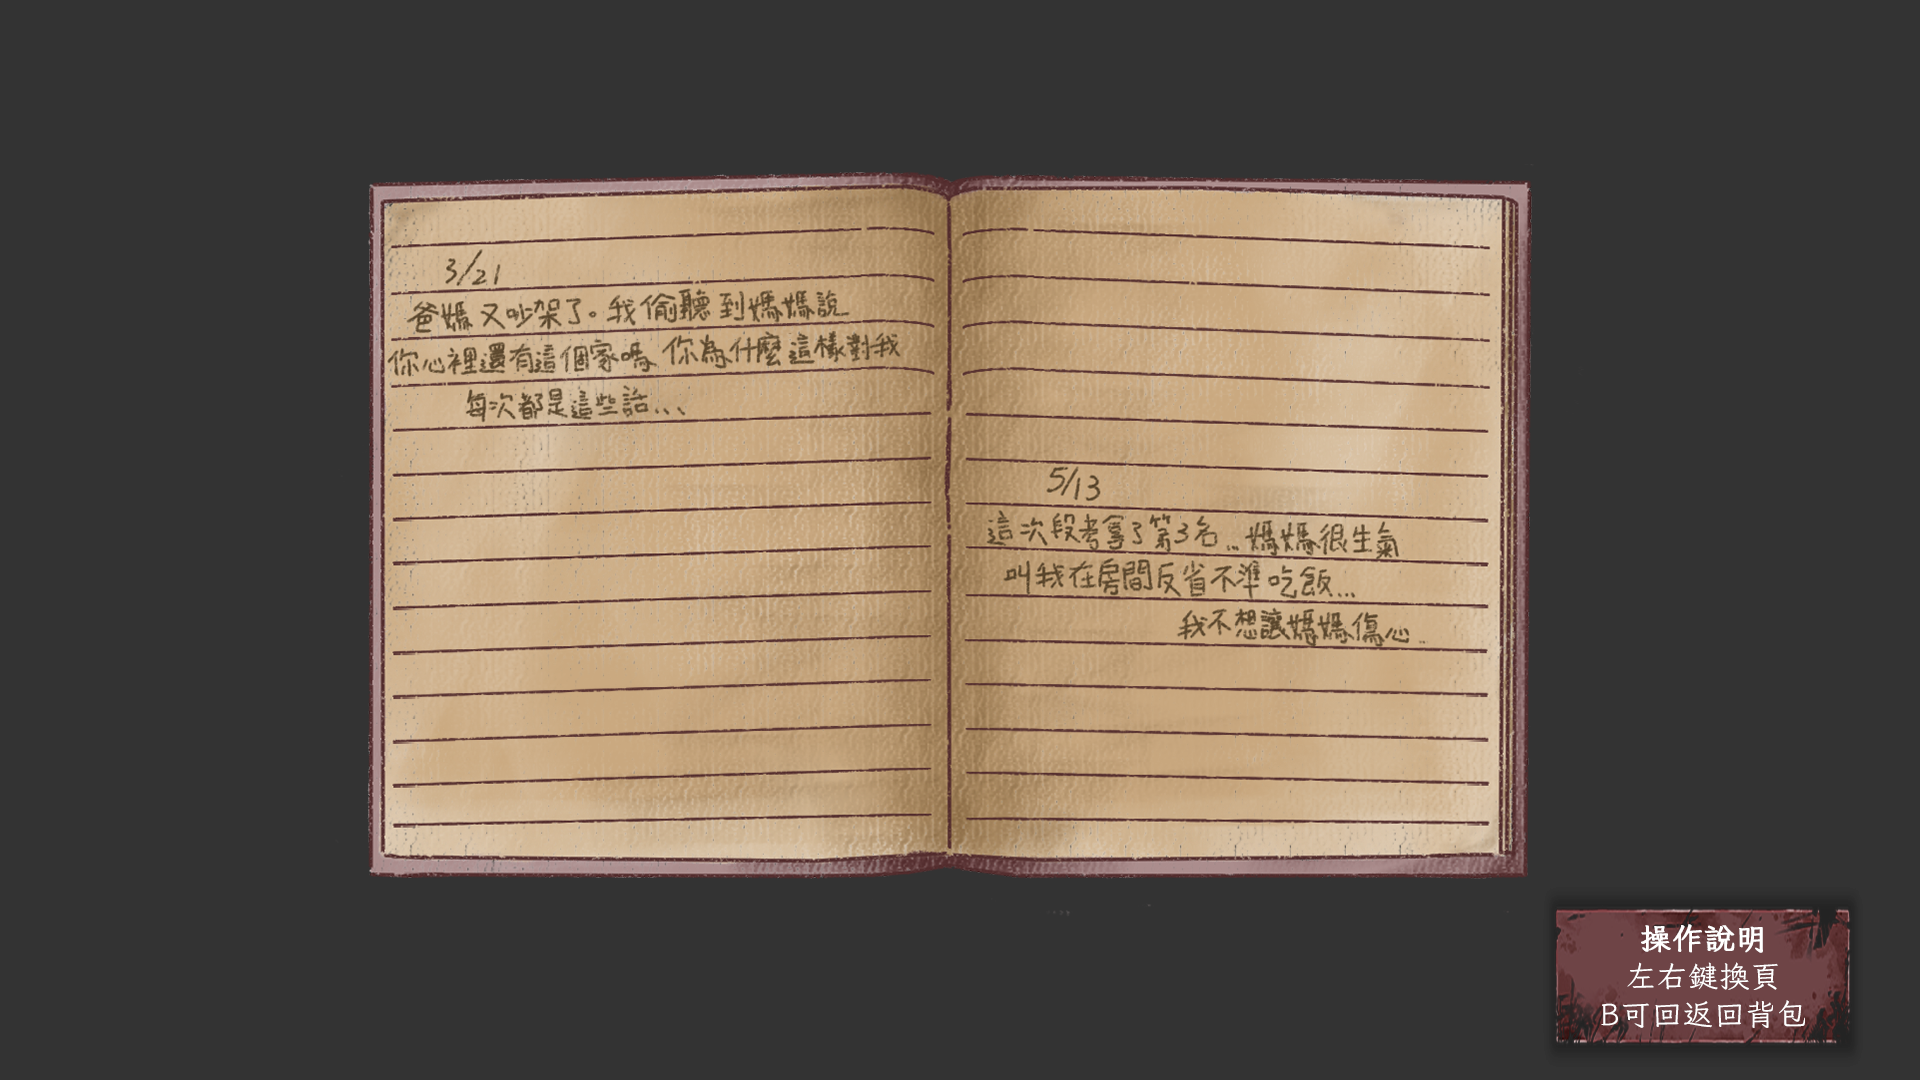 3/21
爸媽又吵架了。我偷聽到媽媽說
你心裡還有這個家嗎 你為什麼這樣對我
每次都是這些話...
5/13
這次段考拿了第3名...媽媽很生氣
叫我在房間反省不準吃飯...
我不想讓媽媽傷心...
操作說明
左右鍵換頁
B可回返回背包